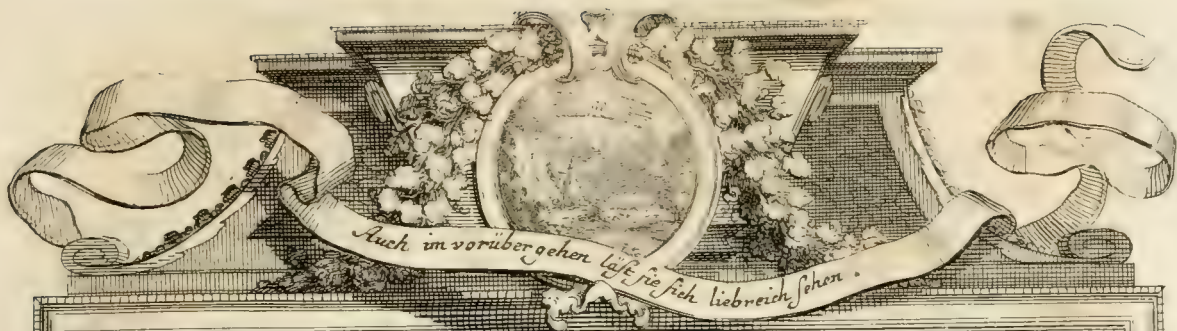 Auch im vorüber gehen läst sie sich liebreich sehen.